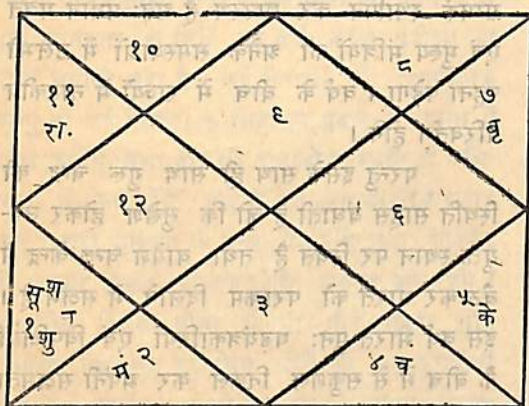 १०
८
११
रा.
९
७
वृ
१२
६
सू श
१ शु
३
५
के
मं २
४ च